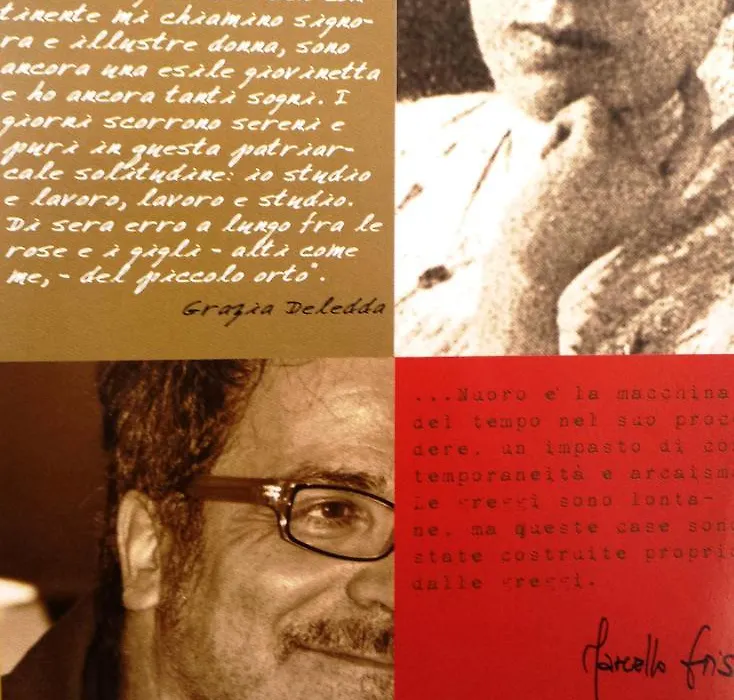 tinente mi chiamino signo-
ra e illustre donna, sono
ancora una esile giovinetta
e ho ancora tanti sogni. I
giorni scorrono sereni e
puri in questa patriar-
cale solitudine: io studio
e lavoro, lavoro e studio.
Di sera erro a lungo fra le
rose e i gigli - alti come
me, - del piccolo orto".
Grazia Deledda
...Nuoro e' la macchina
del tempo nel suo proc
dere. un impasto di co
temporaneità e arcaism
Le greggi sono lonta-
ne. ma queste case son
state costruite propri
dalle greggi.
Marcello Fris